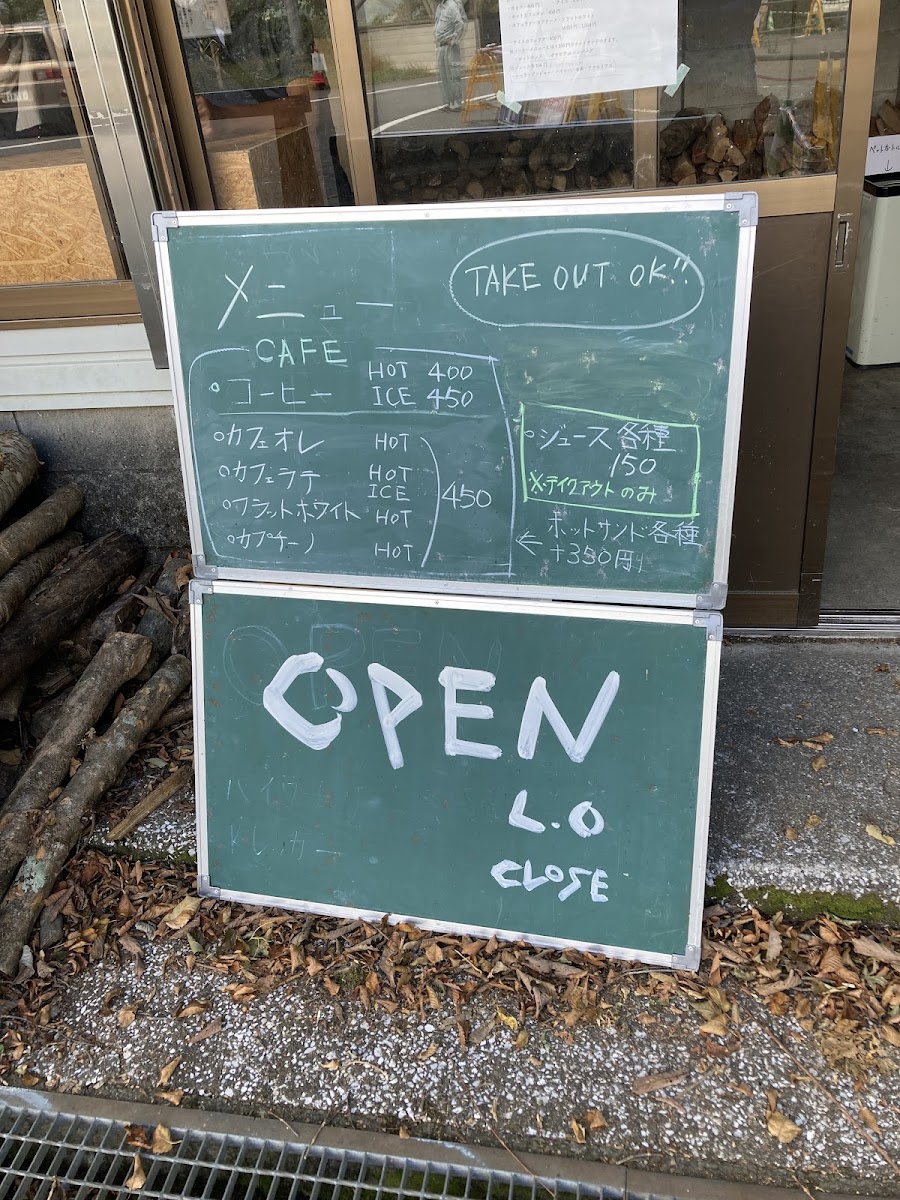 メニュー
TAKE OUT OK!!
CAFE
。コーヒー HOT 400
ICE 450
。カフェオレ HOT
。カフェラテ HOT
ICE
。フラットホワイト HOT
。カプチーノ HOT
450
。ジュース各種
150
※テイクアウトのみ
← ホットサンド各種
+350円
OPEN
L.O
CLOSE
OPEN
ペットボトル
↓